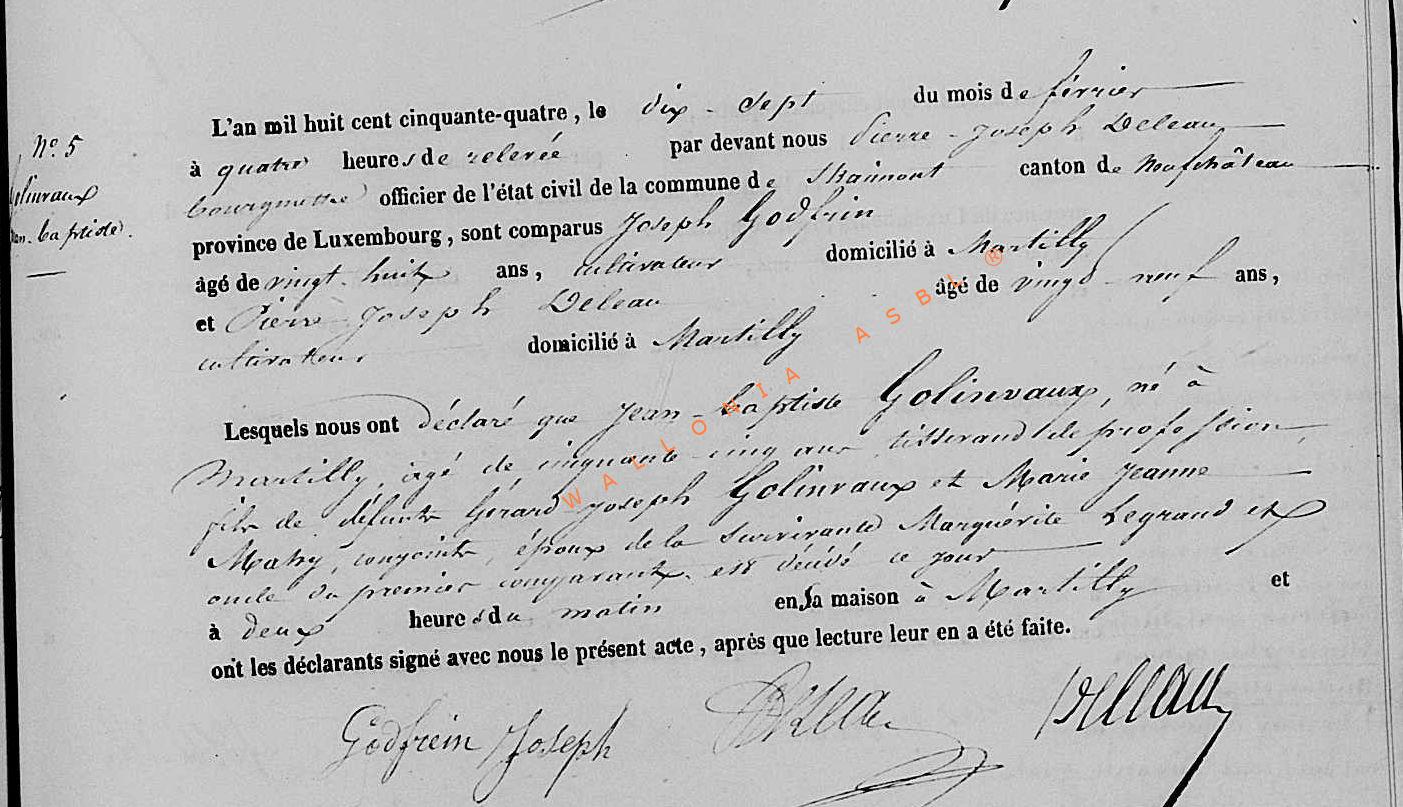 N.º 5
Golinvaux
Jean-baptiste.
L'an mil huit cent cinquante-quatre, le dix-sept du mois de février
à quatre heures de relevée par devant nous Pierre-Joseph Deleau
bourgmestre officier de l'état civil de la commune de Straimont canton de Neufchâteau
province de Luxembourg, sont comparus Joseph Godfrin
âgé de vingt-huit ans, cultivateur domicilié à Martilly
et Pierre-Joseph Deleau âgé de vingt-neuf ans,
cultivateur domicilié à Martilly
Lesquels nous ont déclaré que Jean-baptiste Golinvaux, né à
Martilly, âgé de cinquante-cinq ans, tisserand de profession,
fils de défunts Gérard-Joseph Golinvaux et Marie Jeanne
Mahy, conjoints, époux de la survivante Marguérite Legrand et
oncle du premier comparant est décédé ce jour
à deux heures du matin en sa maison à Martilly et
ont les déclarants signé avec nous le présent acte, après que lecture leur en a été faite.
Godfrein Joseph Deleau Deleau
WALLONIA ASBL ®